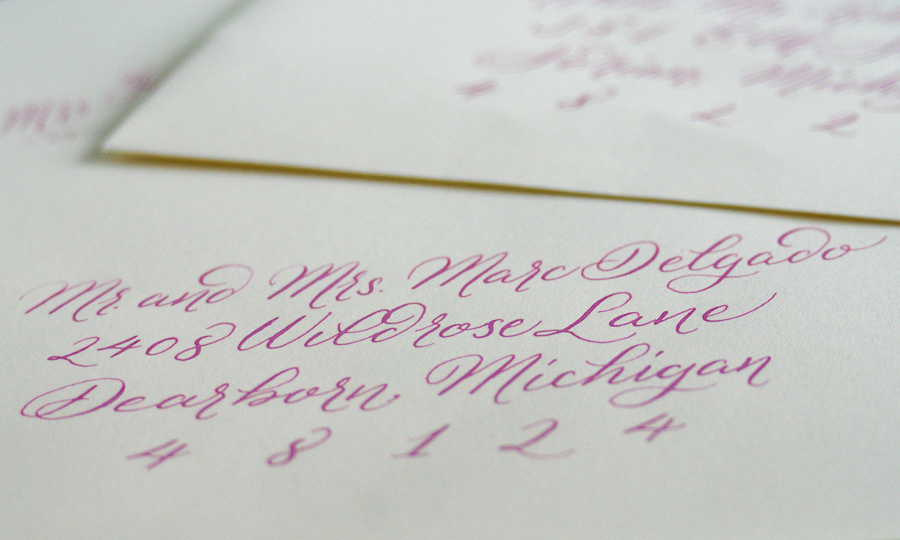 4 8 1 2
Mr. and Mrs. Marc Delgado
2408 Wildrose Lane
Dearborn, Michigan
4 8 1 2 4